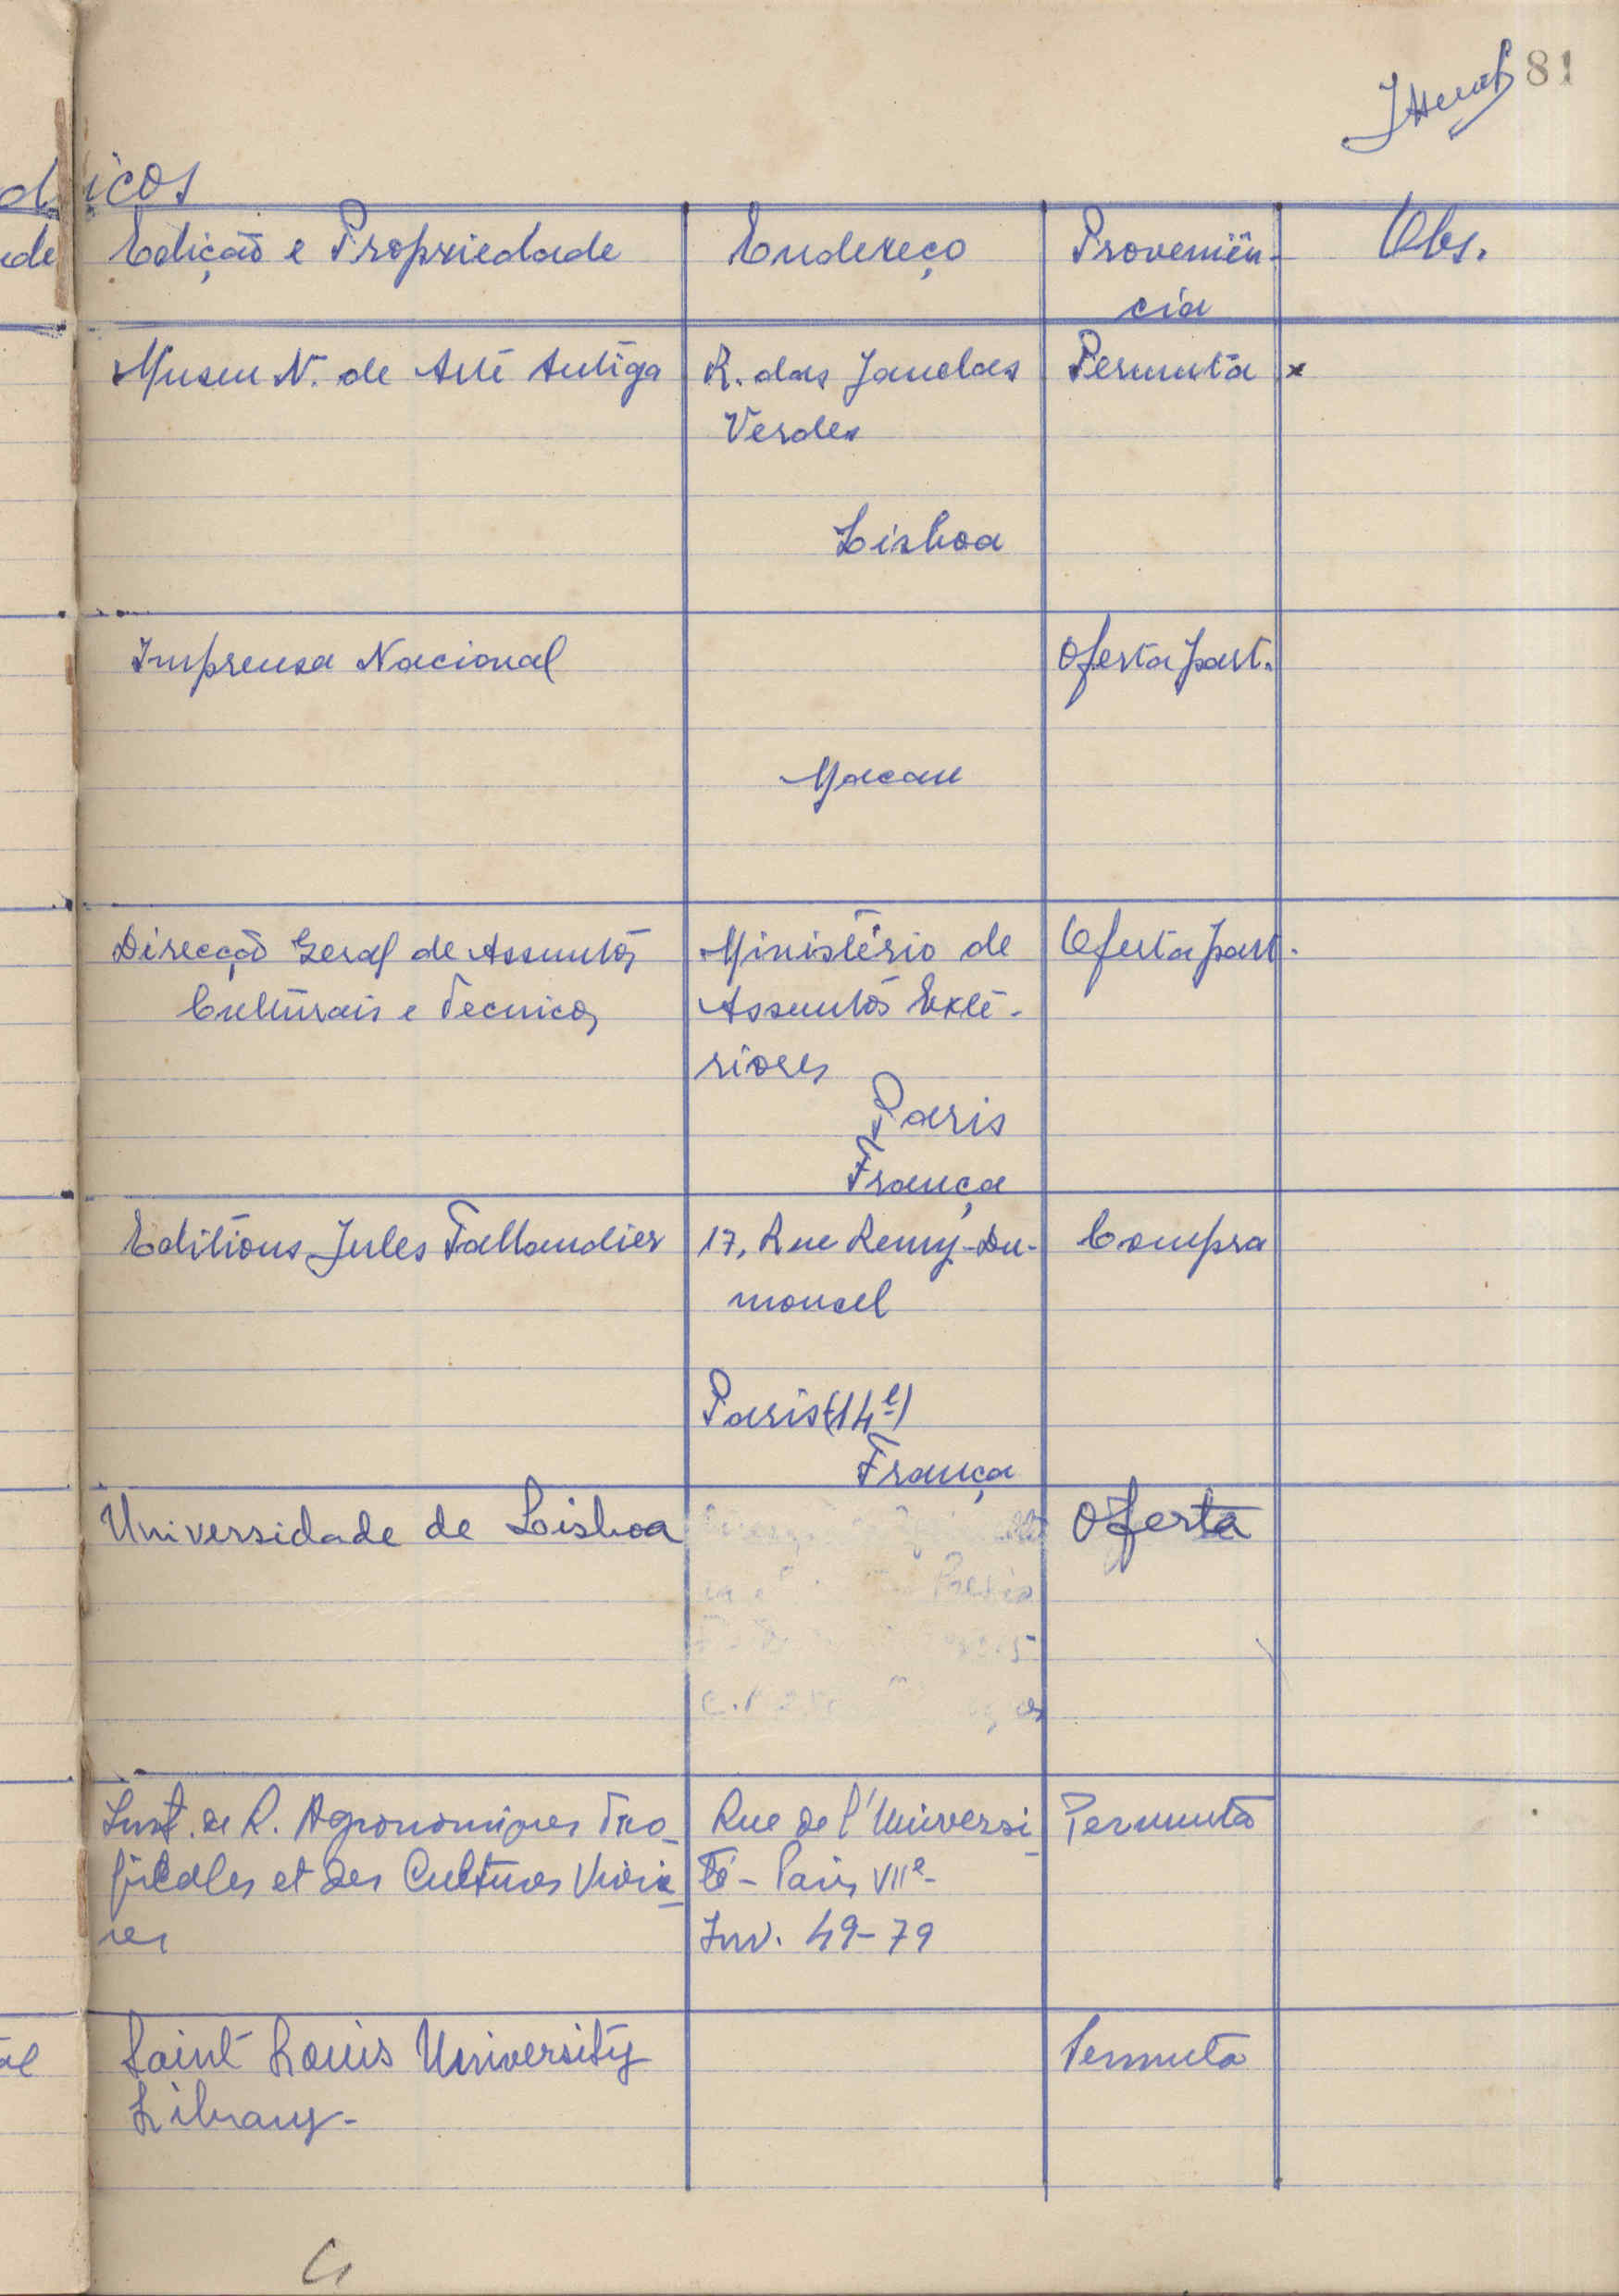 81
icos
Edição e Propriedade Endereço Proveniên- Obs.
cia
Museu N. de Arte Antiga R. das Janelas Permuta x
Verdes
Lisboa
Imprensa Nacional Oferta part.
Macau
Direcção Geral de Assuntos Ministério de Oferta part.
Culturais e Tecnicos Assuntos Exte-
riores
Paris
França
Editions Jules Tallandier 17, Rue Remy-Du- Compra
moncel
Paris (14e)
França
Universidade de Lisboa Oferta
Inst. de R. Agronomiques Tro- Rue de l'Universi- Permuta
picales et des Cultures Vivriè- té - Paris VIIe-
res Inv. 49-79
Saint Louis University Permuta
Library-